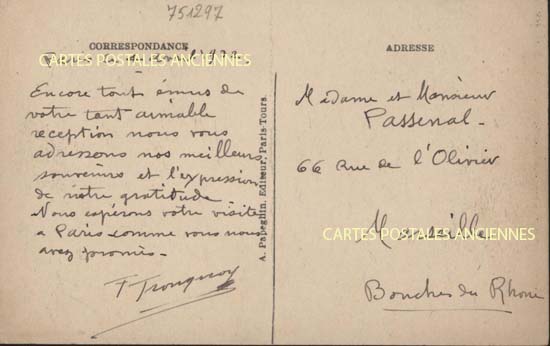 751297
CORRESPONDANCE
CARTES POSTALES ANCIENNES
Encore tout émus de
votre tant aimable
réception nous vous
adressons nos meilleurs
souvenirs et l'expression
de notre gratitude
Nous espérons votre visite
à Paris comme vous nous
avez promis.
A. Papeghin, Editeur, Paris-Tours.
ADRESSE
Madame et Monsieur
Passenal
66 Rue de l'Olivier
Marseille
CARTES POSTALES ANCIENNES
Bouches du Rhone